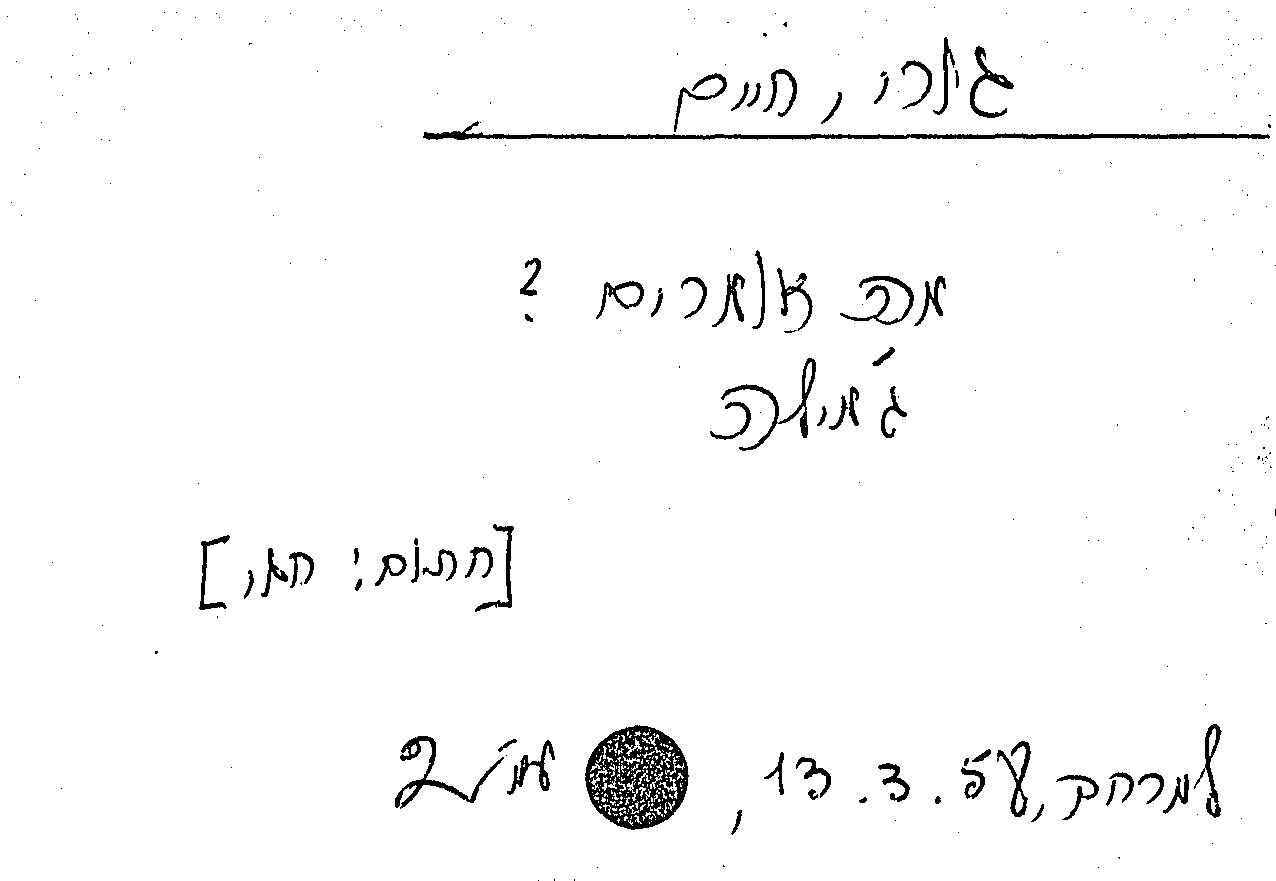 גורי, חיים
מה אומרים ?
ג'מילה
[חתום: חגי]
למרחב, 13.3.58, עמ' 2